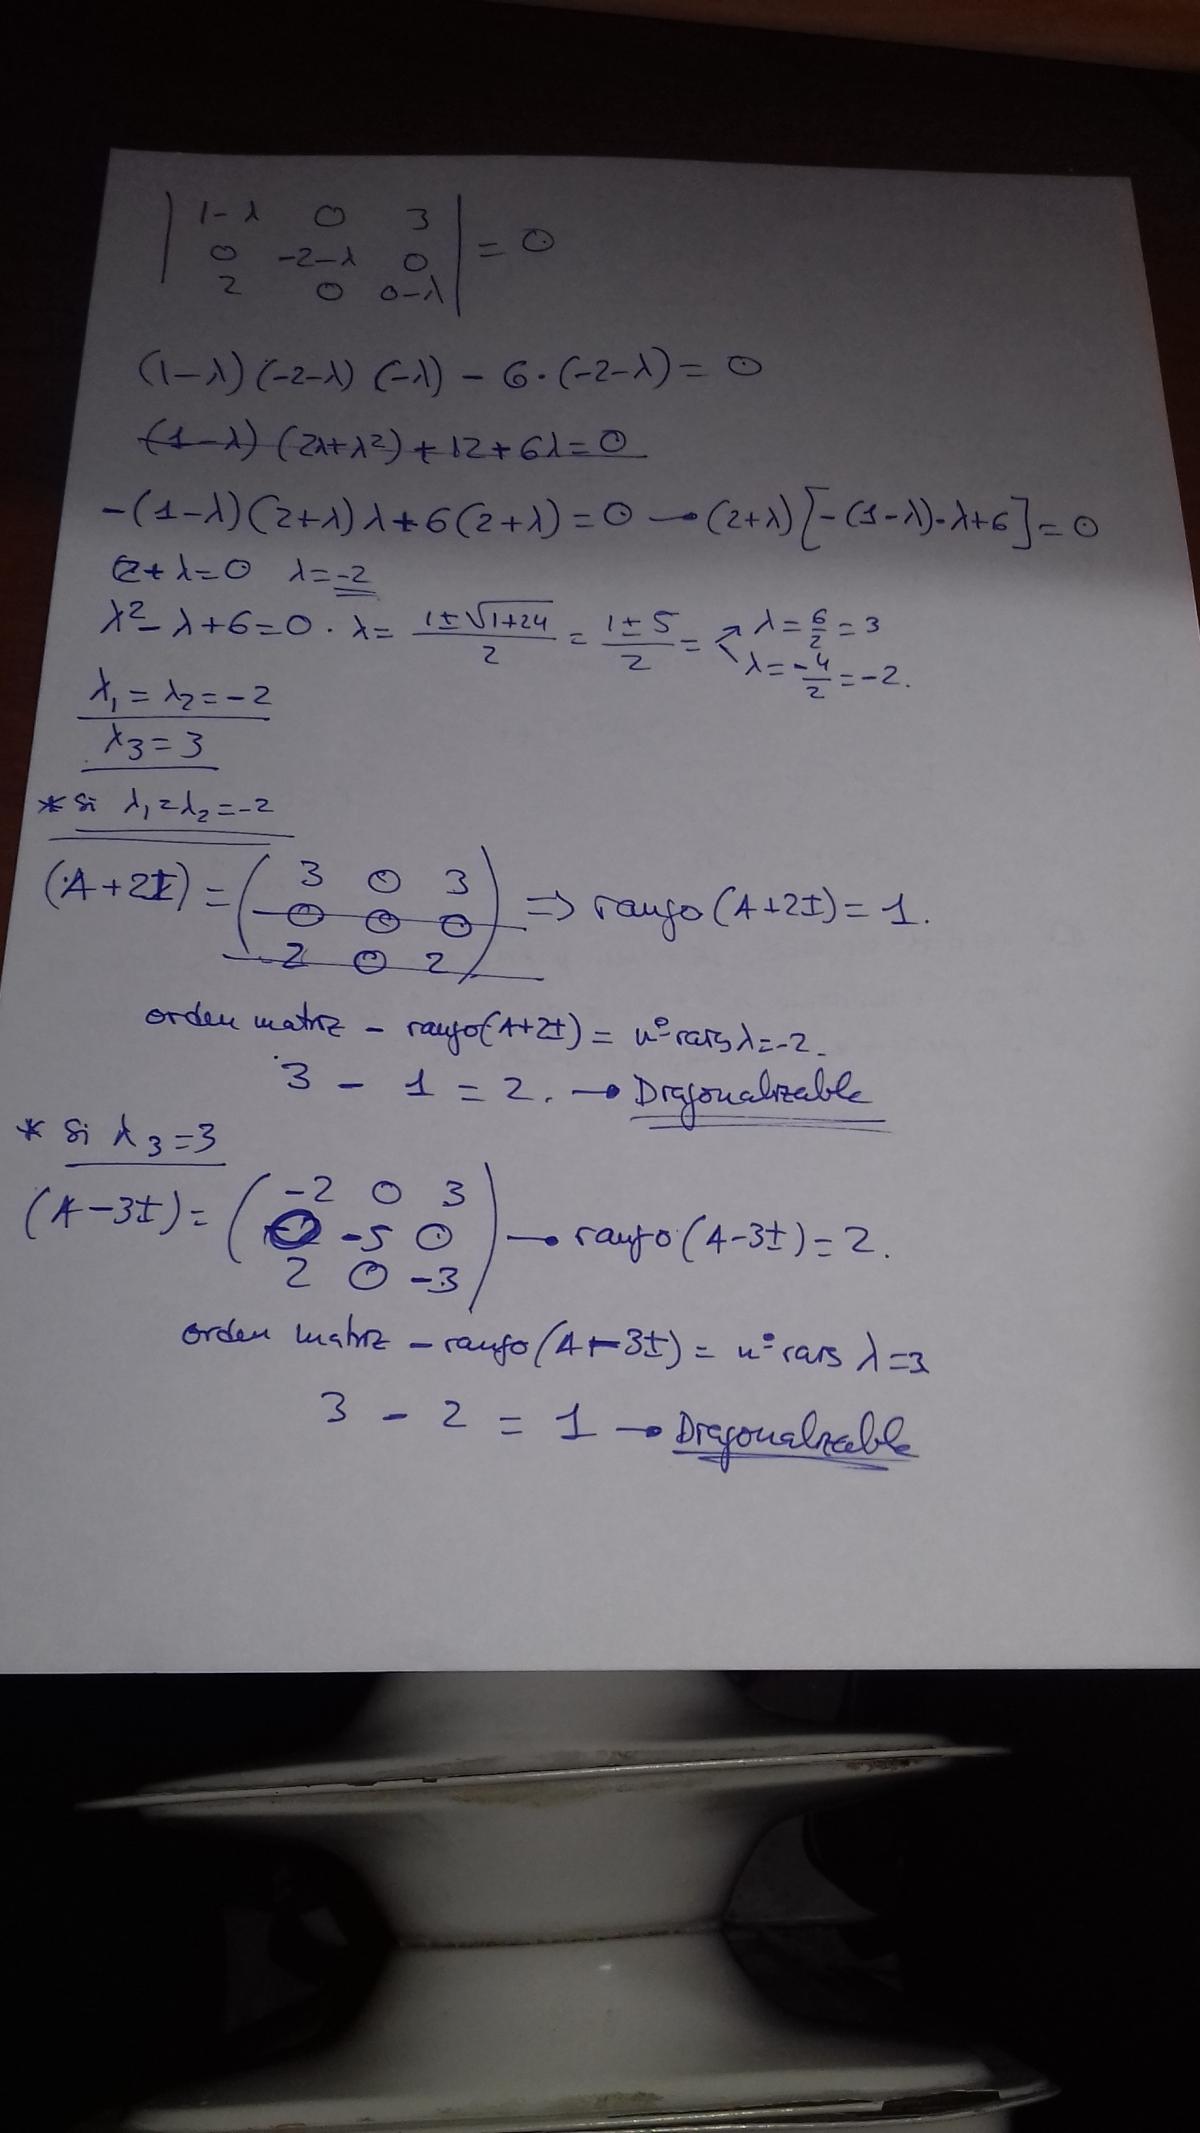 | 1-λ 0 3 |
| 0 -2-λ 0 | = 0
| 2 0 0-λ |
(1-λ)(-2-λ)(-λ) - 6·(-2-λ) = 0
(1-λ)(2λ+λ²) + 12 + 6λ = 0
-(1-λ)(2+λ)λ + 6(2+λ) = 0 → (2+λ)[-(1-λ)·λ+6] = 0
2+λ=0 λ=-2
λ²-λ+6=0 · λ= (1±√1+24)/2 = (1±5)/2 = λ=6/2=3
λ=-4/2=-2.
λ₁=λ₂=-2
λ3=3
* Si λ₁=λ₂=-2
(A+2I) = ( 3 0 3
0 0 0 ⇒ rango(A+2I)=1.
2 0 2 )
orden matriz - rango(A+2I) = nº raís λ=-2.
3 - 1 = 2. → Diagonalizable
* Si λ3=3
(A-3I)= ( -2 0 3
0 -5 0 → rango(A-3I)=2.
2 0 -3 )
orden matriz - rango(A-3I) = nº raís λ=3
3 - 2 = 1 → Diagonalizable